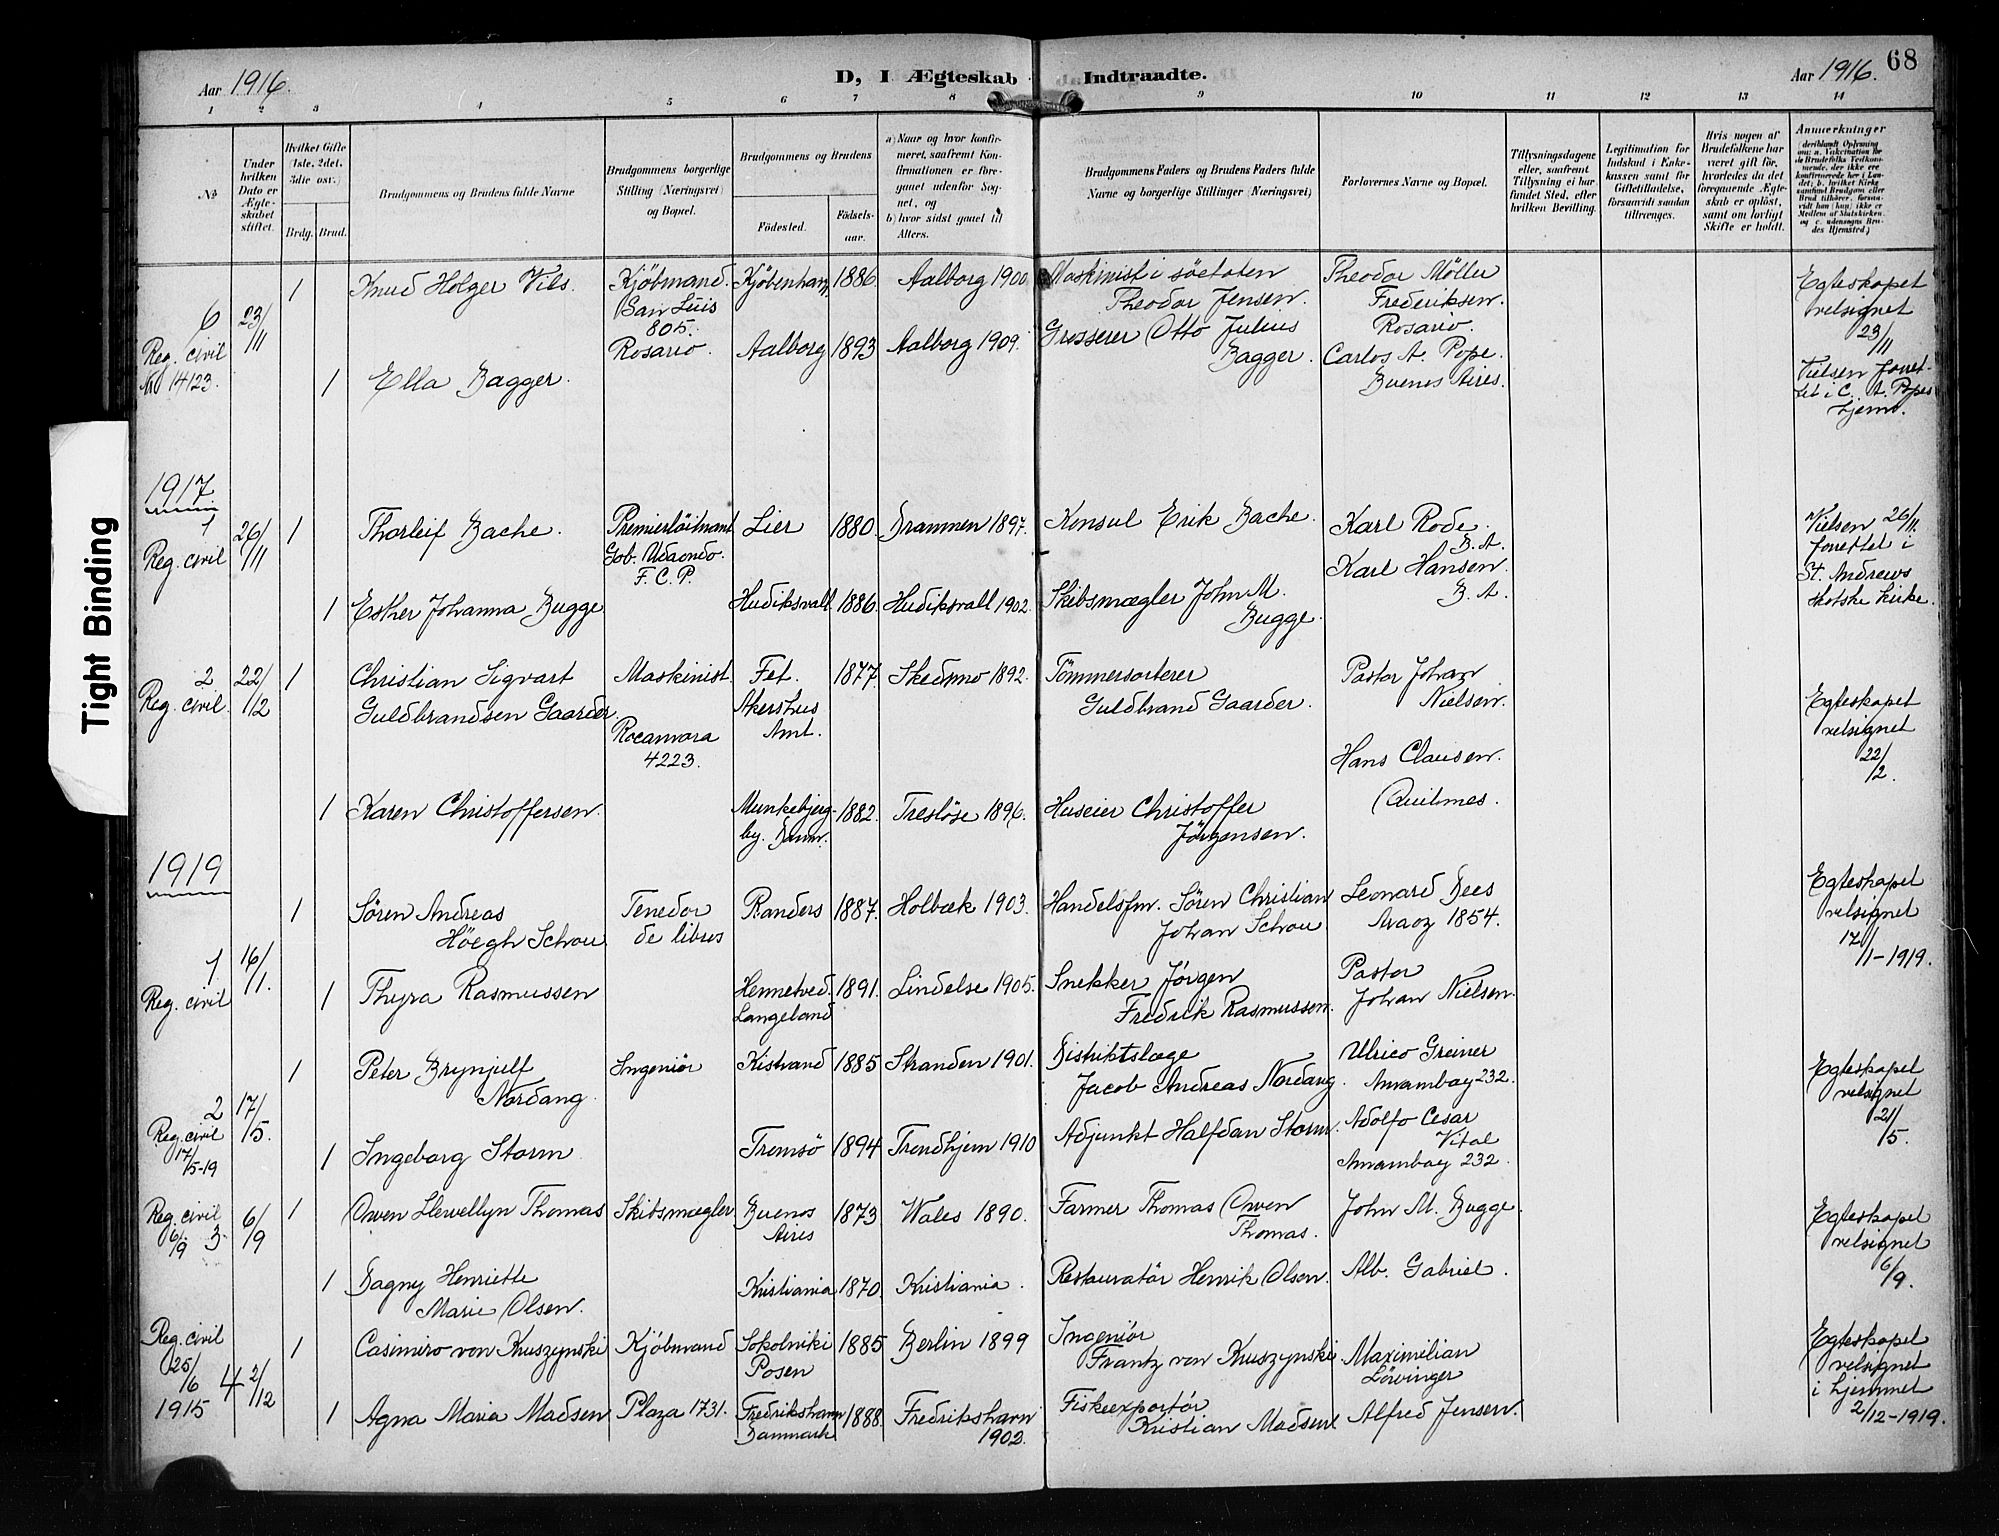 Aar 1916.
D, I Ægteskab Indtraadte.
Aar 1916. 68
1 2 3 4 5 6 7 8 9 10 11 12 13 14
№
Under hvilken Dato er Ægteskabet stiftet.
Hvilket Gifte (1ste, 2det, 3die osv.)
Brdg. Brud.
Brudgommens og Brudens fulde Navne
Brudgommens borgerlige Stilling (Næringsvei) og Bopæl.
Brudgommens og Brudens
Fødested.
Fødselsaar.
a) Naar og hvor konfirmeret, saafremt Konfirmationen er foregaaet udenfor Sognet, og
b) hvor sidst gaaet til Alters.
Brudgommens Faders og Brudens Faders fulde Navne og borgerlige Stillinger (Næringsvei)
Forlovernes Navne og Bopæl.
Tillysningsdagene eller, saafremt Tillysning ei har fundet Sted, efter hvilken Bevilling.
Legitimation for Indskud i Enkekassen samt for Giftetilladelse, forsaavidt saadan tiltrænges.
Hvis nogen af Brudefolkene har været gift før, hvorledes da det foregaaende Ægteskab er opløst, samt om lovligt Skifte er holdt.
Anmerkninger
6
Reg. civil
No 14123
23/11
1 Knud Holger Vils. Kjöbmand. San Luis 805. Rosario. Kjöbenhavn 1886 Aalborg 1900 Maskinist i söetaten Theodor Jensen. Theodor Möller Frederiksen. Rosario.
1 Ella Bagger. Aalborg 1893 Aalborg 1909. Grosserer Otto Julius Bagger. Carlos A. Pope. Buenos Aires.
Egteskapet velsignet 23/11
Nielsen forrettet i C. A. Popes hjem.
1917
1
Reg. civil
26/11
1 Thorleif Bache. Premierlöitnant Gob. Udaondo. F. C. P. Lier 1880. Drammen 1897. Konsul Erik Bache. Karl Rode. B. A.
1 Esther Johanna Bugge Hudiksvall 1886. Hudiksvall 1902. Skibsmægler John M. Bugge. Karl Hansen. B. A.
Nielsen 26/11. forrettet i St. Andrews skotske kirke.
2
Reg. civil.
22/12
1 Christian Sigvart Guldbrandsen Gaarder Maskinist. Rocamora 4223. Fet. Akershus Amt. 1877. Skedsmo 1892. Tömmersorterer Guldbrand Gaarder. Pastor Johan Nielsen.
1 Karen Christoffersen. Munkebjergby. Danm. 1882. Treslöse 1896. Huseier Christoffer Jörgensen. Hans Clausen. Quilmes.
Egteskapet velsignet 22/2.
1919
1
Reg. civil
16/1.
1 Sören Andreas Höegh Schou Tenedor de libros Randers 1887. Holbæk 1903. Handelsfm. Sören Christian Johan Schou Leonard Dees Araoz 1854.
1 Thyra Rasmussen Hennetved. Langeland 1891. Lindelse 1905. Snekker Jörgen Fredrik Rasmussen. Pastor Johan Nielsen.
Egteskapet velsignet 17/1-1919.
2
Reg. civil
17/5-19
17/5.
1 Peter Brynjulf Nordang. Ingeniör Kistrand 1885 Stranden 1901. Distriktslæge Jacob Andreas Nordang. Ulrico Greiner Amambay 232.
1 Ingeborg Storm Tromsö 1894 Trondhjem 1910 Adjunkt Halfdan Storm. Adolfo Cesar Vital Amambay 232.
Egteskapet velsignet 21/5.
Reg. civil
6/9 3
6/9
1 Owen Llewellyn Thomas Skibsmægler Buenos Aires 1873 Wales 1890. Farmer Thomas Owen Thomas. John M. Bugge.
1 Dagny Henriette Marie Olsen. Kristiania 1870. Kristiania. Restauratör Henrik Olsen. Alb. Gabriel.
Egteskapet velsignet 6/9.
Reg. civil
25/6
1915
4 2/12
1 Casimiro von Kruszynski Kjöbmand Sokolniki Posen 1885 Berlin 1899 Ingeniör Frantz von Kruszynski Maximilian Lövinger
1 Agna Maria Madsen Plaza 1731. Fredrikshavn Danmark 1888. Fredrikshavn 1902. Fiskeexportör Kristian Madsen Alfred Jensen.
Egteskapet velsignet i hjemmet 2/12-1919.
Tight Binding